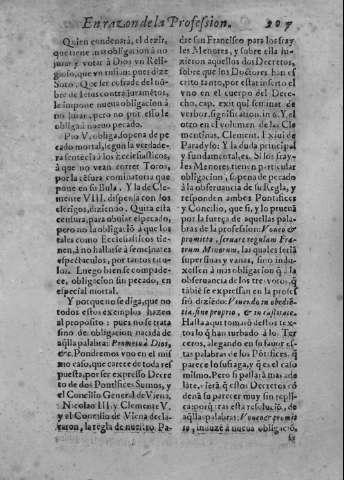 En razon de la Profession. 207
Quien condenará, el dezir,
que tiene mas obligacion à no
jurar y votar à Dios vn Reli-
gioso, que vn rufian: pues dize
Soto. Que ser cofrade del nō-
bre de Iesus contra juramētos,
le impone nueua obligacion à
no jurar, pero no por esso le
obliga à nueuo pecado.
Pio V. obliga, so pena de pe-
cado mortal, segun la verdade-
ra sentēcia à los Ecclesiasticos,
à que no vean correr Toros,
por la cēsura cominatoria que
pone en su Bula. Y la de Cle-
mente VIII. dispensa con los
clerigos, diziendo. Quita esta
censura, para obuiar el pecado,
pero no la obligaciō à que los
tales como Ecclesiasticos tie-
nen, à no hallarse à semejantes
espectaculos, por tantos titu-
los. Luego bien se compade-
ce, obligacion sin pecado, en
especial mortal.
Y porque no se diga, que no
todos estos exemplos hazen
al proposito: pues no se trata
sino de obligacion nacida de
aq̄lla palabra: Prometo à Dios,
&c. Pondremos vno en el mis-
mo caso, que carece de toda res
puesta, por ser expresso Decre
to de dos Pontifices Sumos, y
el Concilio General de Viena.
Nicolao III. y Clemente V.
y el Concilio de Viena decla-
raron, la regla de nuestro Pa-
dre san Francisco para los fray
les Menores, y sobre ella hi-
zieron aquellos dos Decretos,
sobre que los Doctores han es
crito tanto, por estar inserto el
vno en el cuerpo del Dere-
cho, cap. exijt qui seminat. de
verbor. signification. in 6. Y el
otro en el volumen de las Cle
mentinas, Clement. Exiui de
Paradyso: Y la duda principal
y fundamental, es. Si los fray-
les Menores, tienen particular
obligacion, so pena de pecado
à la obseruancia de su Regla, y
responden ambos Pontifices
y Concilio, que si, y lo prueuā
por la fuerça de aquellas pala-
bras de la profession: Voueo &
promitto, seruare regulam Fra-
trum Minorum, las quales serià
superfluas y vanas, sino indu-
xessen à mas obligacion q̄ à la
obseruancia de los tres votos, q̄
tābiē se expressan en la profes
siō diziēdo: Viuendo in obediē-
tia, sine proprio, & in castitate.
Hasta aqui tomarō destos tex-
tos lo q̄ han turbado à los Ter
ceros, alegando en su fauor es-
tas palabras de los Pōtifices, q̄
parece lo sufraga, y q̄ es el caso
mismo. Pero si passarà mas ade
late, vierā q̄ estos Decretos cō
denā su parecer muy sin repli-
ca: porq̄ tras esta resoluciō, de
aq̄llas palabras, Voueo & promit
to, induzē à nueua obligaciō,